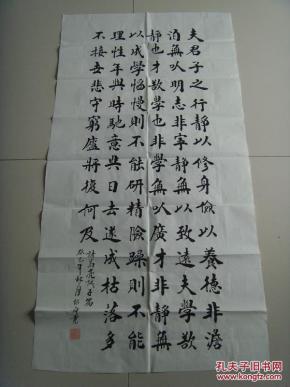 夫君子之行靜以修身儉以養德非澹
泊無以明志非寧靜無以致遠夫學欲
靜也才欲學也非學無以廣才非靜無
以成學慆慢則不能研精險躁則不能
理性年與時馳意與日去遂成枯落多
不接世悲守窮廬將復何及
諸葛亮誡子書